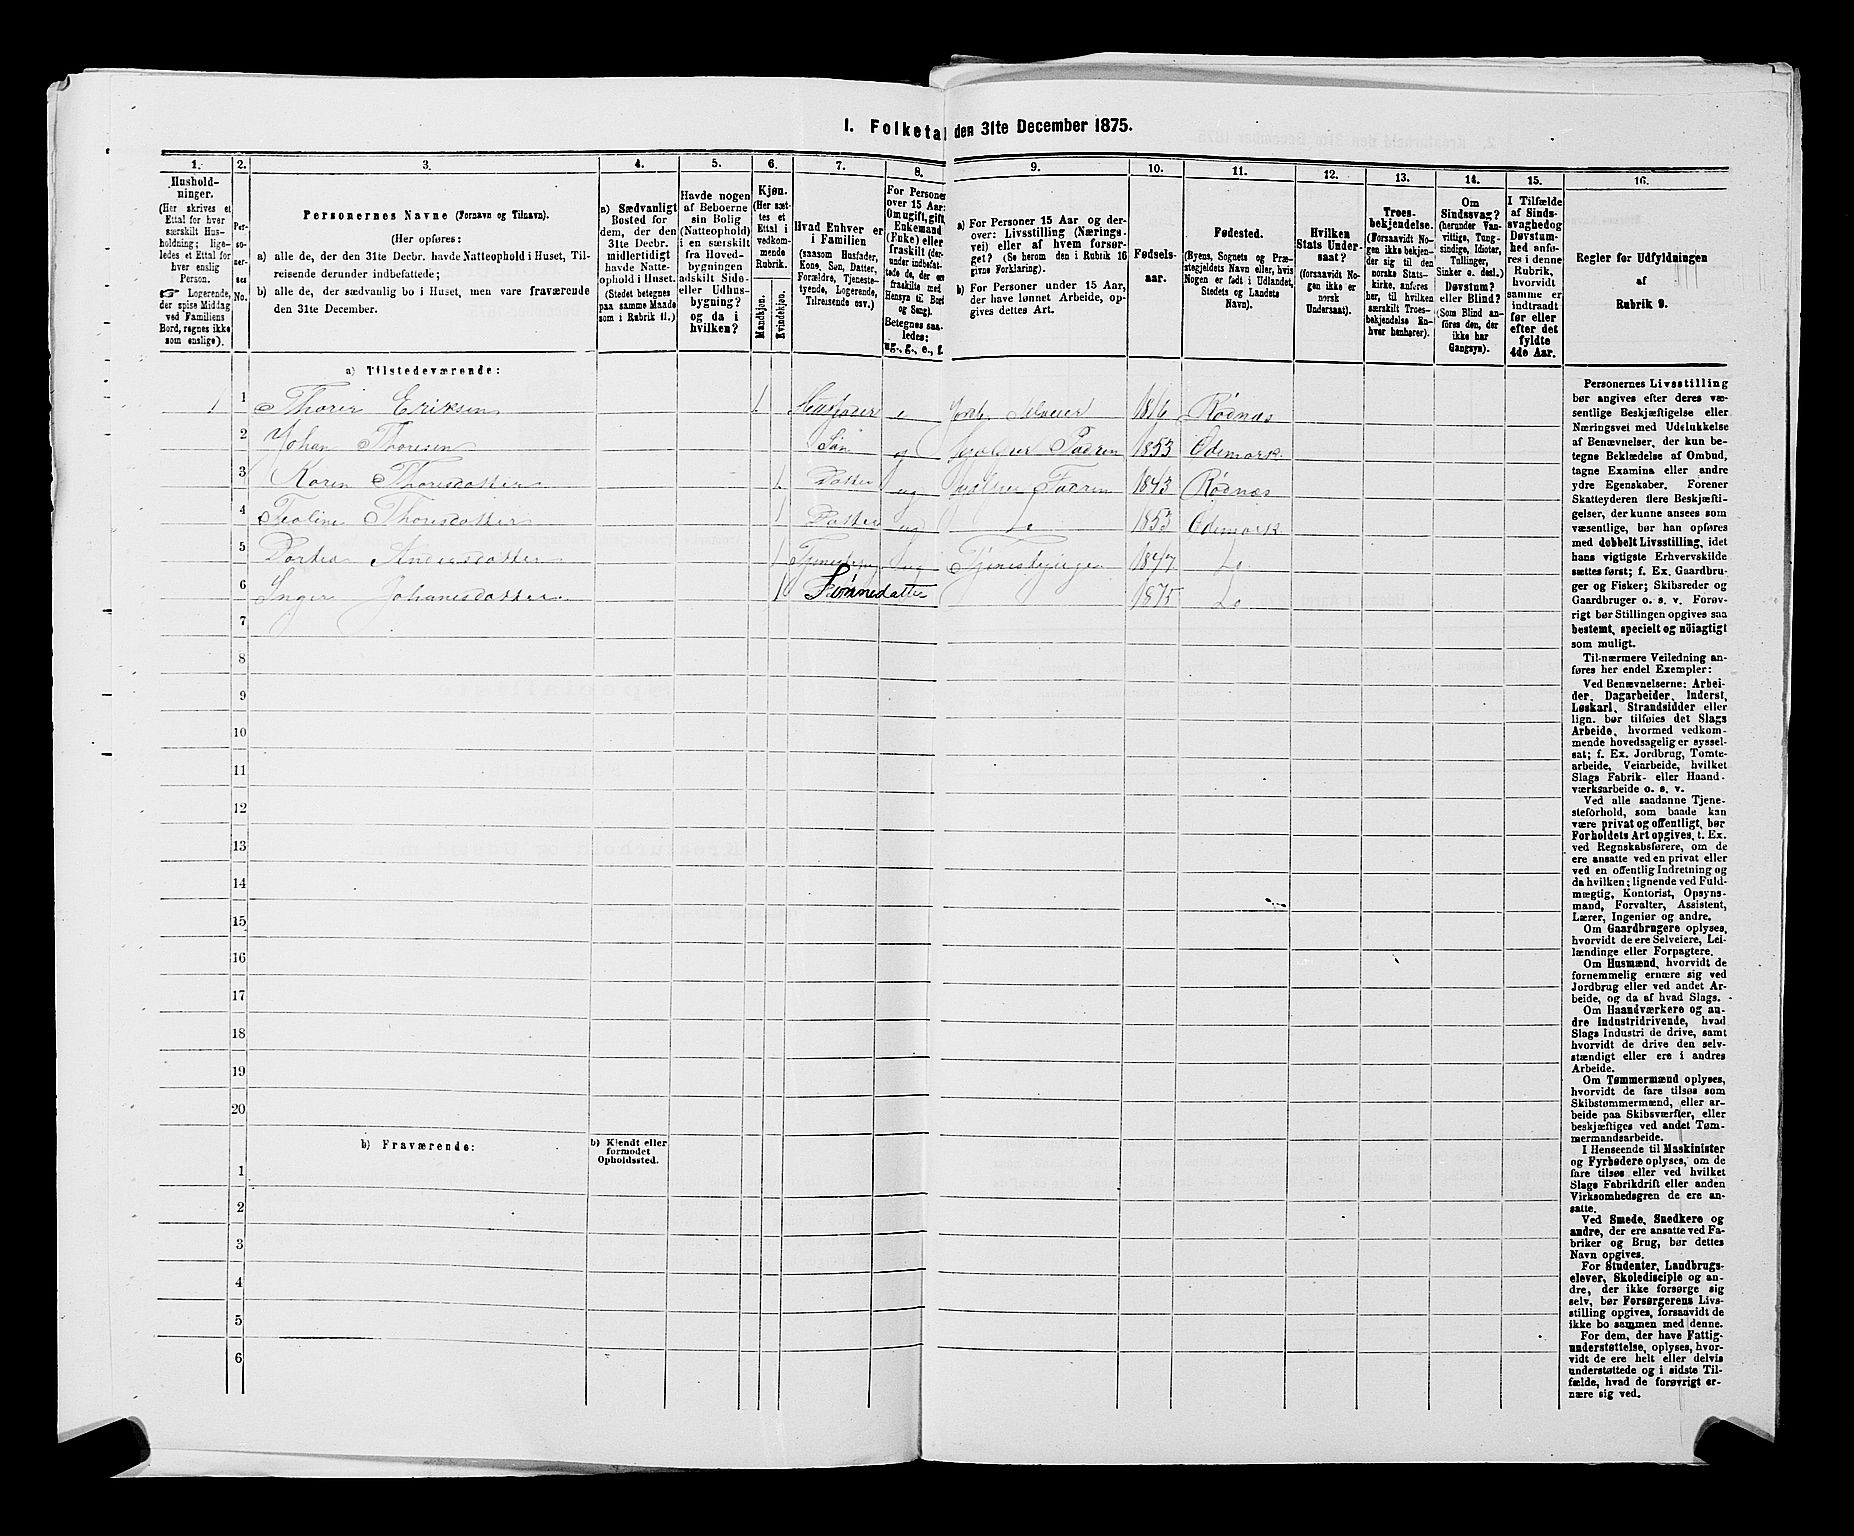 I. Folketal den 31te December 1875.
1. 2. 3. 4. 5. 6. 7. 8. 9. 10. 11. 12. 13. 14. 15. 16.
Hushold-
ninger.
(Her skrives et
Ettal for hver
særskilt Hus-
holdning; lige-
ledes et Ettal for
hver enslig
Person.
☞ Logerende,
der spise Middag
ved Familiens
Bord, regnes ikke
som enslige).
Per-
so-
ner-
nes
No.
Personernes Navne (Fornavn og Tilnavn).
(Her opføres:
a) alle de, der den 31te Decbr. havde Natteophold i Huset, Til-
reisende derunder indbefattede;
b) alle de, der sædvanlig bo i Huset, men vare fraværende
den 31te December.
a) Sædvanligt
Bosted for
dem, der den
31te Decbr.
midlertidigt
havde Natte-
ophold i Huset.
(Stedet betegnes
paa samme Maade
som i Rubrik 11.)
Havde nogen
af Beboerne
sin Bolig
(Natteophold)
i en særskilt
fra Hoved-
bygningen
adskilt Side-
eller Udhus-
bygning?
og da i
hvilken?
Kjøn.
(Her sæt-
tes et
Ettal i
vedkom-
mende
Rubrik.
Mandkjøn.
Kvindekjøn.
Hvad Enhver er
i Familien
(saasom Husfader,
Kone, Søn, Datter,
Forældre, Tjeneste-
tyende, Logerende,
Tilreisende osv.)
For Personer
over 15 Aar:
Om ugift, gift,
Enkemand
(Enke) eller
fraskilt (der-
under indbefat-
tede de, der ere
fraskilte med
Hensyn til Bord
og Seng).
Betegnes saa-
ledes:
ug., g., e., f.
a) For Personer 15 Aar og der-
over: Livsstilling (Nærings-
vei) eller af hvem forsør-
get? (Se herom den i Rubrik 16
givne Forklaring).
b) For Personer under 15 Aar,
der have lønnet Arbeide, op-
gives dettes Art.
Fødsels-
aar.
Fødested.
(Byens, Sognets og Præ-
stegjeldets Navn eller, hvis
Nogen er født i Udlandet,
Stedets og Landets
Navn).
Hvilken
Stats Under-
saat?
(forsaavidt No-
gen ikke er
norsk
Undersaat).
Troes-
bekjendelse.
(Forsaavidt No-
gen ikke bekjen-
der sig til den
norske Stats-
kirke, anføres
her, til hvilken
særskilt Troes-
bekjendelse En-
hver henhører).
Om
Sindssvag?
(herunder Van-
vittige, Tung-
sindige, Idioter,
Tullinger,
Sinker o. desl.)
Døvstum?
eller Blind?
(Som Blind an-
føres den, der
ikke har
Gangsyn).
I Tilfælde
af Sinds-
svaghed og
Døvstum-
hed anfø-
res i denne
Rubrik,
hvorvidt
samme er
indtraadt
før eller
efter det
fyldte
4de Aar.
Regler for Udfyldningen
af
Rubrik 9.
a) Tilstedeværende:
1 1 Thorer Eriksen 1. Husfader e 1816 Rødnæs
2 Johan Thoresen Søn ug Fadren 1853 Ødemark
3 Karen Thoresdatter 1. Datter ug Fadren 1843 Rødnæs
4 Thoresdatter 1 Datter ug 1853 Ødemark
5 Dorthea Andersdatter 1 ug 1847
6 Inger Johanesdatter 1 Sønnedatter 1875
7
8
9
10
11
12
13
14
15
16
17
18
19
20
b) Fraværende:
b) Kjendt eller
formodet
Opholdssted.
1
2
3
4
5
6
Personernes Livsstilling
bør angives efter deres væ-
sentlige Beskjæftigelse eller
Næringsvei med Udelukkelse
af Benævnelser, der kun be-
tegne Beklædelse af Ombud,
tagne Examina eller andre
ydre Egenskaber. Forener
Skatteyderen flere Beskjæfti-
gelser, der kunne ansees som
væsentlige, bør han opføres
med dobbelt Livsstilling, idet
hans vigtigste Erhvervskilde
sættes først; f. Ex. Gaardbru-
ger og Fisker; Skibsreder og
Gaardbruger o. s. v. Forøv-
rigt bør Stillingen opgives saa
bestemt, specielt og nöiagtigt
som muligt.
Til nærmere Veiledning an-
føres her endel Exempler:
Ved Benævnelserne: Arbei-
der, Dagarbeider, Inderst,
Løskarl, Strandsidder eller
lign. bør tilføies det Slags
Arbeide, hvormed vedkom-
mende hovedsagelig er syssel-
sat; f. Ex. Jordbrug, Tomte-
arbeide, Veiarbeide, hvilket
Slags Fabrik- eller Haand-
værksarbeide o. s. v.
Ved alle saadanne Tjene-
steforhold, som baade kan
være privat og offentligt, bør
Forholdets Art opgives, t. Ex.
ved Regnskabsførere, om de
ere ansatte ved en privat eller
ved en offentlig Indretning og
da hvilken; lignende ved Fuld-
mægtig, Kontorist, Opsyns-
mand, Forvalter, Assistent,
Lærer, Ingeniør og andre.
Om Gaardbrugere oplyses,
hvorvidt de ere Selveiere, Lei-
lændinge eller Forpagtere.
Om Husmænd, hvorvidt de
fornemmelig ernære sig ved
Jordbrug eller ved andet Ar-
beide, og da af hvad Slags.
Om Haandværkere og an-
dre Industridrivende, hvad
Slags Industri de drive, samt
hvorvidt de drive den selv-
stændigt eller ere i andres
Arbeide.
Om Tømmermænd oplyses,
hvorvidt de fare tilsøs som
Skibstømmermænd, eller ar-
beide paa Skibsværfter, eller
beskjæftiges ved andet Tøm-
mermandsarbeide.
I Henseende til Maskinister
og Fyrbødere oplyses, om de
fare tilsøs eller ved hvilket
Slags Fabrikdrift eller anden
Virksomhedsgren de ere an-
satte.
Ved Smede, Snedkere og
andre, der ere ansatte ved Fa-
briker og Brug, bør dettes
Navn opgives.
For Studenter, Landbrugs-
elever, Skoledisciple og an-
dre, der ikke forsørge sig
selv, bør Forsørgerens Livs-
stilling opgives, forsaavidt de
ikke bo sammen med denne.
For dem, der have Fattig-
understøttelse, oplyses, hvor-
vidt de ere helt eller delvis
understøttede og i sidste Til-
fælde, hvad de forøvrigt er-
nære sig ved.